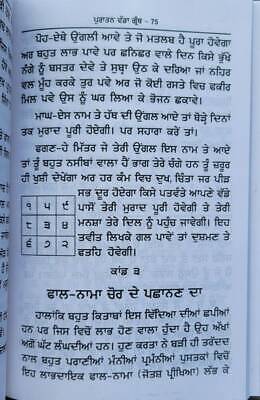 ਪੁਰਾਤਨ ਵੱਡਾ ਗ੍ਰੰਥ - 75
ਪੋਹ-ਏਥੇ ਉਂਗਲੀ ਆਵੇ ਤੇ ਜੋ ਮਤਲਬ ਹੈ ਪੂਰਾ ਹੋਵੇਗਾ
ਅਰ ਬਹੁਤ ਲਾਭ ਪਾਵੇ ਪਰ ਛਨਿਛਰ ਵਾਲੇ ਦਿਨ ਕਿਸੇ ਭੁੱਖੇ
ਨੰਗੇ ਨੂੰ ਬਸਤਰ ਦੇਵੇ ਤੇ ਸੁਬਾ ਉਠ ਕੇ ਦਰਿਆ ਜਾਂ ਨਹਿਰ
ਵਲ ਮੂੰਹ ਕਰਕੇ ਤੁਰ ਪਵੇ ਅਰ ਜੋ ਕੋਈ ਰਸਤੇ ਵਿਚ ਫਕੀਰ
ਮਿਲ ਪਵੇ ਉਸ ਨੂੰ ਘਰ ਲਿਆ ਕੇ ਭੋਜਨ ਛਕਾਵੇ।
ਮਾਘ-ਏਸ ਨਾਮ ਤੇ ਹੱਥ ਦੀ ਉਂਗਲ ਆਏ ਤਾਂ ਥੋੜੇ ਦਿਨਾਂ
ਤਕ ਮੁਰਾਦ ਪੂਰੀ ਹੋਏਗੀ। ਪਰ ਸਹਾਰਾ ਕਰੋ ਤਾਂ।
ਫਗਣ-ਹੇ ਮਿੱਤਰ ਜੇ ਤੇਰੀ ਉਂਗਲ ਇਸ ਨਾਮ ਤੇ ਆਏ
ਤਾਂ ਤੂੰ ਬਹੁਤ ਨਸੀਬਾਂ ਵਾਲਾ ਹੈਂ ਭਾਗ ਤੇਰੇ ਚੰਗੇ ਹਨ ਤੂੰ ਜ਼ਰੂਰ
ਹੀ ਖੁਸ਼ੀ ਦੇਖੇਂਗਾ ਅਰ ਹਰ ਇਕ ਕੰਮ ਦੀ ਦੁਖ, ਚਿੰਤਾ ਜਰ ਪੀੜ
ਸਭ ਦੂਰ ਹੋਏਗਾ ਕਿਸੇ ਪਤਵੰਤੇ ਆਪਣੇ ਵੱਡੇ
ਪਾਸੋਂ ਤੇਰੀ ਮੁਰਾਦ ਪੂਰੀ ਹੋਵੇਗੀ ਤੇ ਤੇਰੀ
ਮਨਸ਼ਾ ਤੇਰੇ ਦਿਲ ਨੂੰ ਪਹੁੰਚ ਜਾਵੇਗੀ। ਇਹ
ਤਵੀਤ ਲਿਖਕੇ ਗਲ ਪਾਵੇਂ ਤਾਂ ਦੁਸ਼ਮਣ ਤੇ
ਫਤਹਿ ਹੋਵੇਗੀ।
੧ ੫ ੯
੮ ੩ ੪
੬ ੭ ੨
ਕਾਂਡ ੩
ਫਾਲ-ਨਾਮਾ ਚੋਰ ਦੇ ਪਛਾਨਣ ਦਾ
ਹਾਲਾਂਕਿ ਬਹੁਤ ਕਿਤਾਬਾਂ ਇਸ ਵਿੱਦਿਆ ਦੀਆਂ ਛਪੀਆਂ
ਹਨ ਪਰ ਜਿਸ ਵਿਚੋਂ ਲਾਭ ਹੋਣ ਵਾਲਾ ਹੁੰਦਾ ਹੈ ਉਹ ਅੱਖਾਂ
ਅਗੇ ਘੱਟ ਲੰਘਦੀਆਂ ਹਨ। ਹੁਣ ਕਰਤਾ ਨੇ ਬੜੀ ਹੀ ਤਰੱਦਦ
ਨਾਲ ਬਹੁਤ ਪਰਾਣੀਆਂ ਮੰਨੀਆਂ ਪ੍ਰਮੰਨੀਆਂ ਪੁਸਤਕਾਂ ਵਿਚੋਂ
ਇਹ ਲਾਭਦਾਇਕ ਫਾਲ-ਨਾਮਾ (ਜੋਤਸ਼ ਪ੍ਰੀਖਿਆ) ਲੱਭ ਕੇ